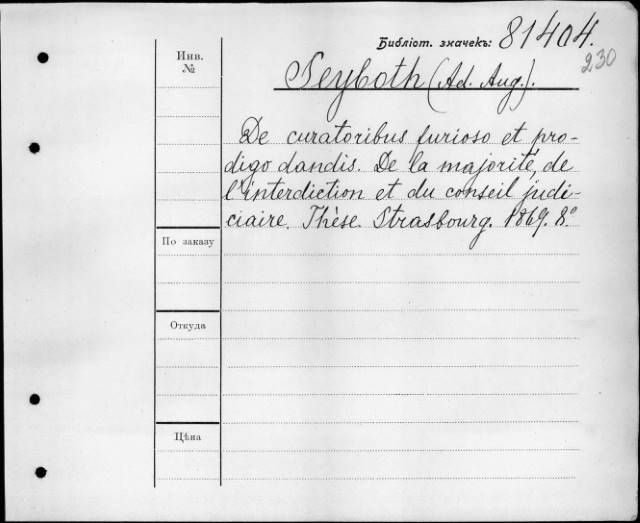 Библіот. значекъ: 81404.
230
Инв.
№
Seyboth (Ad. Aug.).
De curatoribus furioso et pro-
digo dandis. De la majorité, de
l'interdiction et du conseil judi-
ciaire. Thèse. Strasbourg. 1869. 8.°
По заказу
Откуда
Цѣна